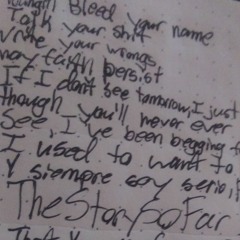 Bleed your name
Talk your shit
Write your wrongs
may faith persist
If I don't see tomorrow, I just
though you'll never ever
See, I've been begging f
I used to want to
Y siempre soy serio,
The Story So Far